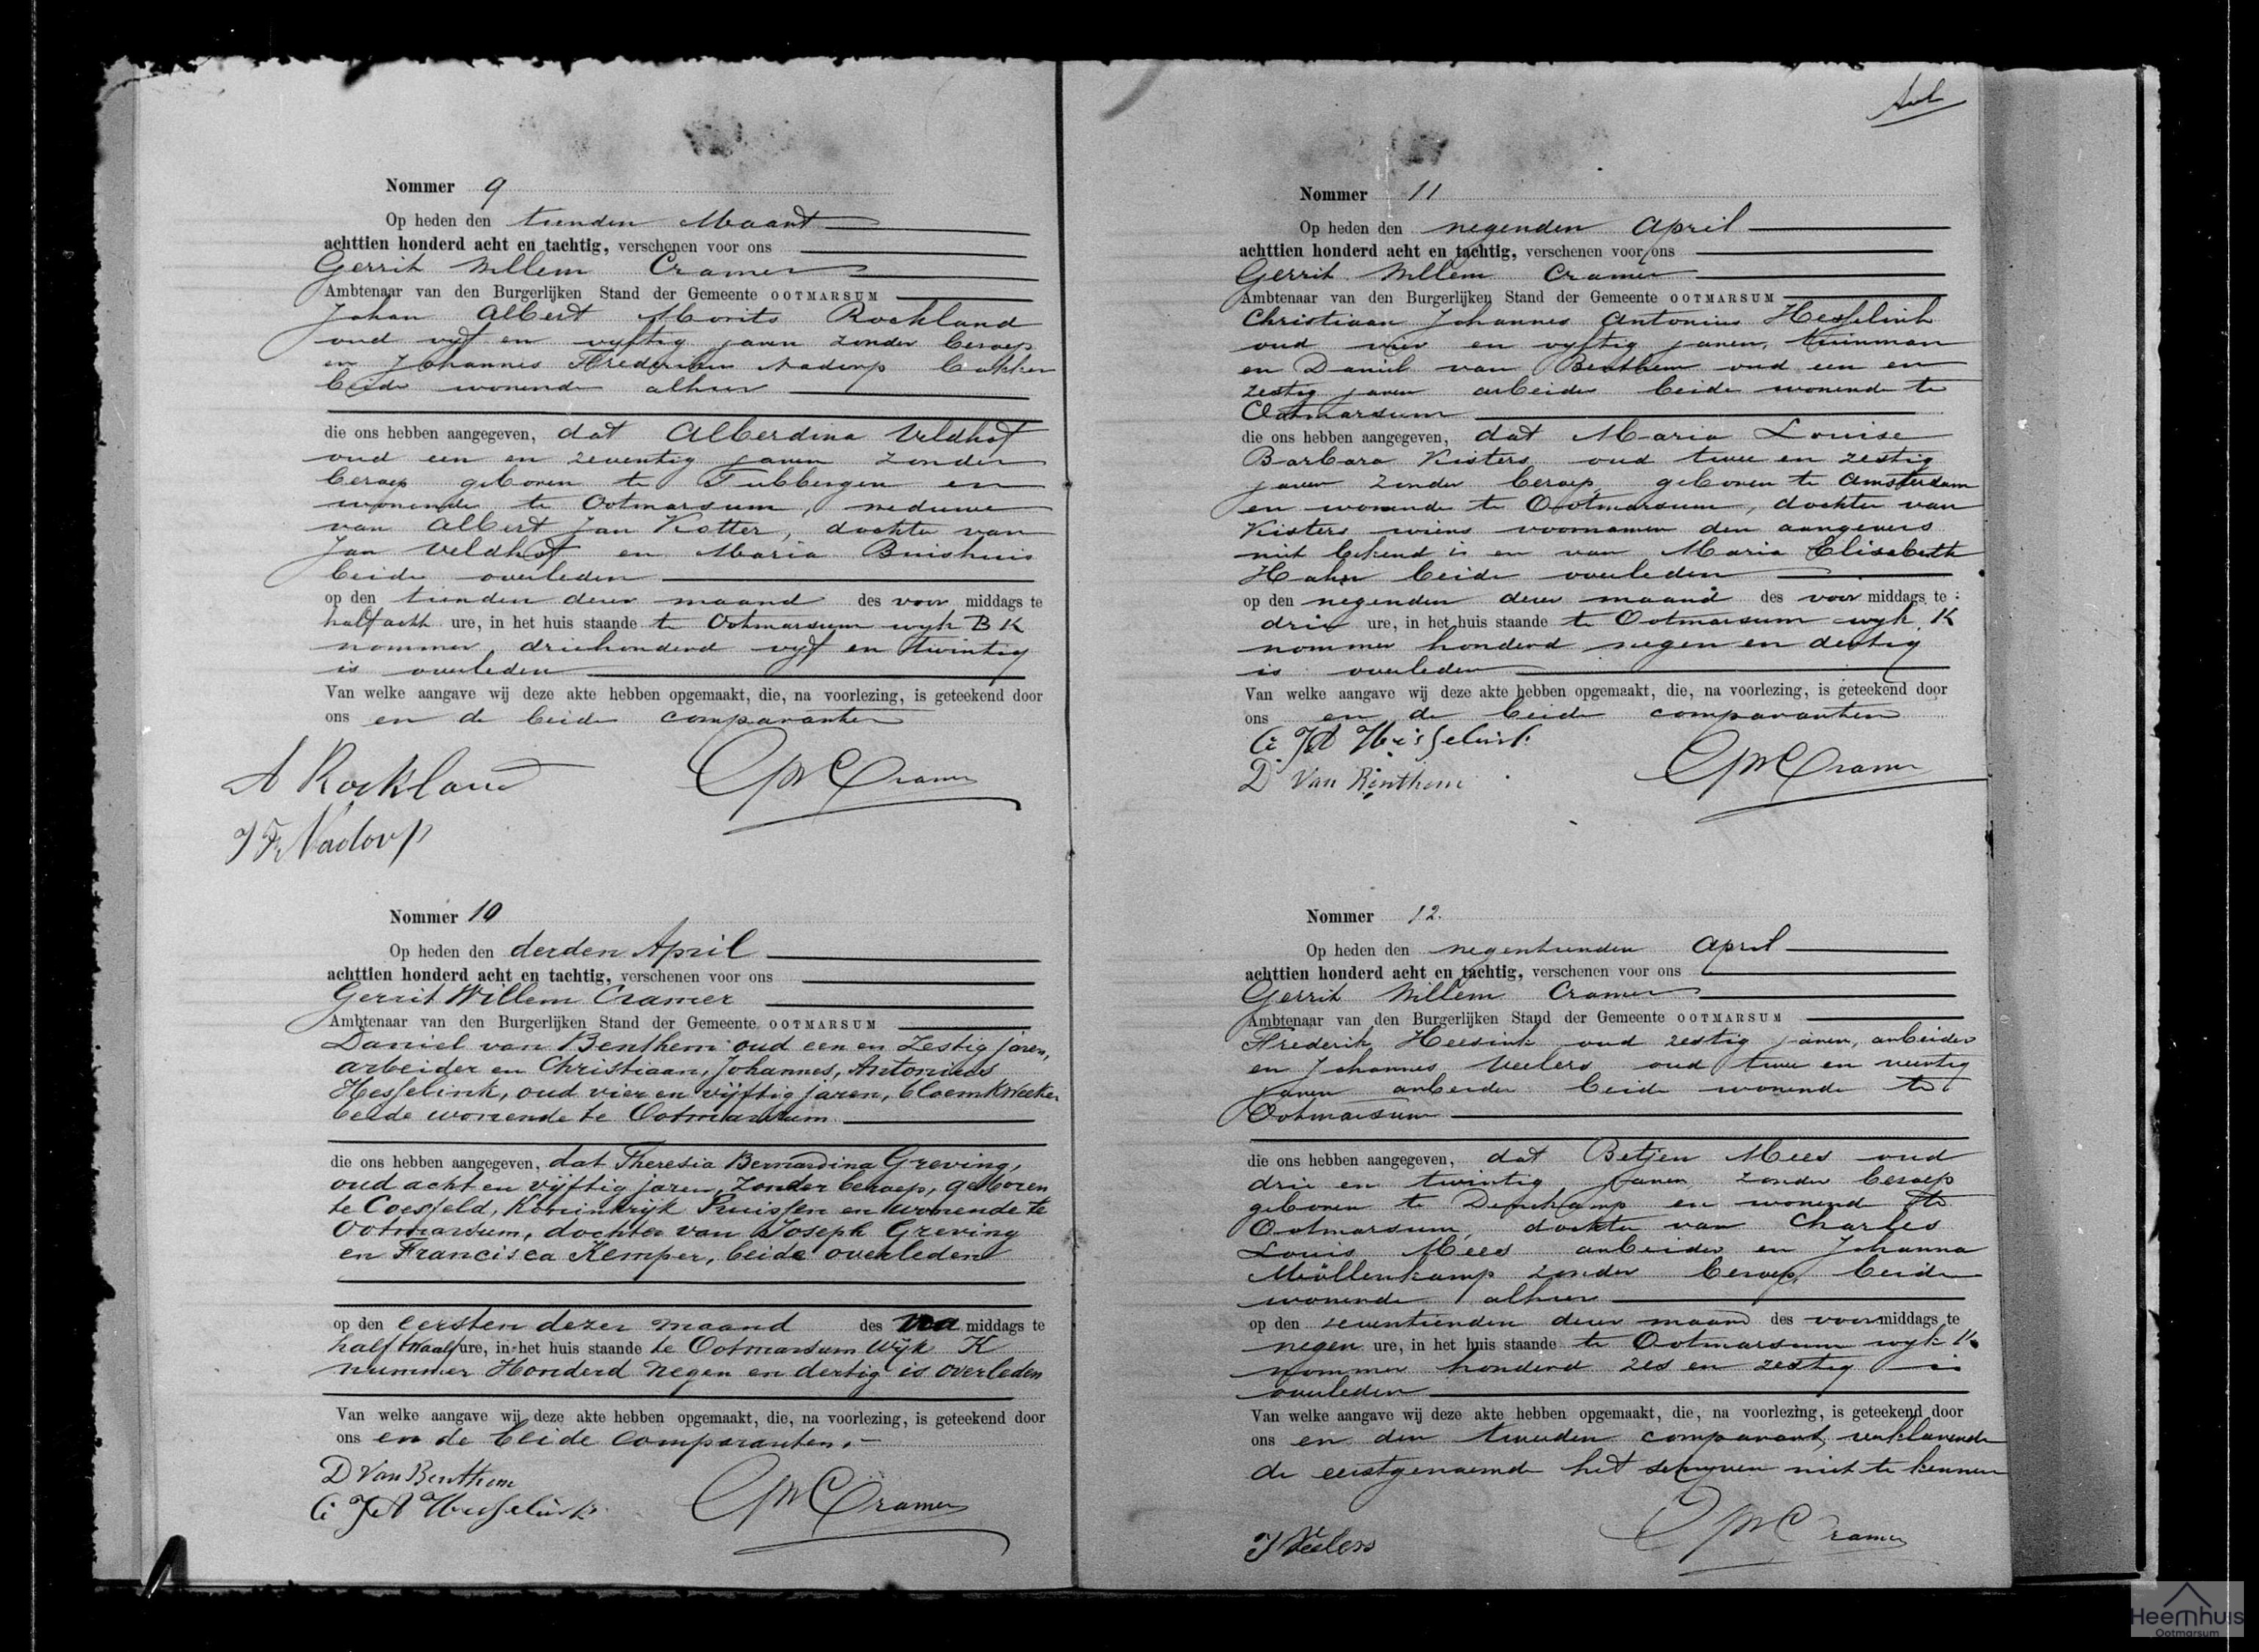 Nommer 9
Op heden den tienden Maart
achttien honderd acht en tachtig, verschenen voor ons
Gerrit Willem Cramer
Ambtenaar van den Burgerlijken Stand der Gemeente OOTMARSUM
Johan Albert Morits Rockland
oud vijf en vijftig jaren zonder beroep
en Johannes Frederikus Nadorp bakker
beide wonende alhier
die ons hebben aangegeven, dat Alberdina Veldhof
oud een en zeventig jaren zonder
beroep geboren te Tubbergen en
wonende te Ootmarsum, weduwe
van Albert Jan Kotter, dochter van
Jan Veldhof en Maria Buishuis
beide overleden
op den tienden dezer maand des voor middags te
half acht ure, in het huis staande te Ootmarsum wijk B K
nommer driehonderd vijf en twintig
is overleden
Van welke aangave wij deze akte hebben opgemaakt, die, na voorlezing, is geteekend door
ons en de beide comparanten
A Rockland GWCramer
J F Nadorp
Nommer 10
Op heden den derden April
achttien honderd acht en tachtig, verschenen voor ons
Gerrit Willem Cramer
Ambtenaar van den Burgerlijken Stand der Gemeente OOTMARSUM
Daniel van Benthem oud een en Zestig jaren,
arbeider en Christiaan, Johannes, Antonius
Hesselink, oud vier en vijftig jaren, bloemkweeker
beide wonende te Ootmarsum
die ons hebben aangegeven, dat Theresia Bernardina Greving,
oud acht en vijftig jaren, zonder beroep, geboren
te Coesfeld, Koninkrijk Pruissen en wonende te
Ootmarsum, dochter van Joseph Greving
en Francisca Kemper, beide overleden
op den eersten dezer maand des na middags te
half twaalf ure, in het huis staande te Ootmarsum Wijk K
nummer Honderd negen en dertig is overleden
Van welke aangave wij deze akte hebben opgemaakt, die, na voorlezing, is geteekend door
ons en de beide comparanten.
D Van Benthem
C J A Hesselink GWCramer
Nommer 11
Op heden den negenden April
achttien honderd acht en tachtig, verschenen voor ons
Gerrit Willem Cramer
Ambtenaar van den Burgerlijken Stand der Gemeente OOTMARSUM
Christiaan Johannes Antonius Hesselink
oud vier en vijftig jaren, tuinman
en Daniel van Benthem oud een en
zestig jaren arbeider beide wonend te
Ootmarsum
die ons hebben aangegeven, dat Maria Louise
Barbara Kisters oud twee en zestig
jaren zonder beroep geboren te Amsterdam
en wonende te Ootmarsum, dochter van
Kisters wiens voornamen den aangevers
niet bekend is en van Maria Elisabeth
Hahn beide overleden
op den negenden dezer maand des voor middags te
drie ure, in het huis staande te Ootmarsum wijk K
nommer honderd negen en dertig
is overleden
Van welke aangave wij deze akte hebben opgemaakt, die, na voorlezing, is geteekend door
ons en de beide comparanten
C J A Hesselink
D Van Benthem GWCramer
Nommer 12.
Op heden den negentienden April
achttien honderd acht en tachtig, verschenen voor ons
Gerrit Willem Cramer
Ambtenaar van den Burgerlijken Stand der Gemeente OOTMARSUM
Frederik Heesink oud zestig jaren, arbeider
en Johannes Veelers oud twee en veertig
jaren arbeider beide wonende te
Ootmarsum
die ons hebben aangegeven, dat Betjen Mees oud
drie en twintig jaren zonder beroep
geboren te Denekamp en wonend te
Ootmarsum, dochter van Charles
Louis Mees arbeider en Johanna
Möllenkamp zonder beroep, beide
wonende alhier
op den zeventienden dezer maand des voor middags te
negen ure, in het huis staande te Ootmarsum wijk K
nommer honderd zes en zestig is
overleden
Van welke aangave wij deze akte hebben opgemaakt, die, na voorlezing, is geteekend door
ons en den tweeden comparant, verklarende
de eerstgenoemde het schrijven niet te kennen
J Veelers GWCramer
Heemhuis
Ootmarsum